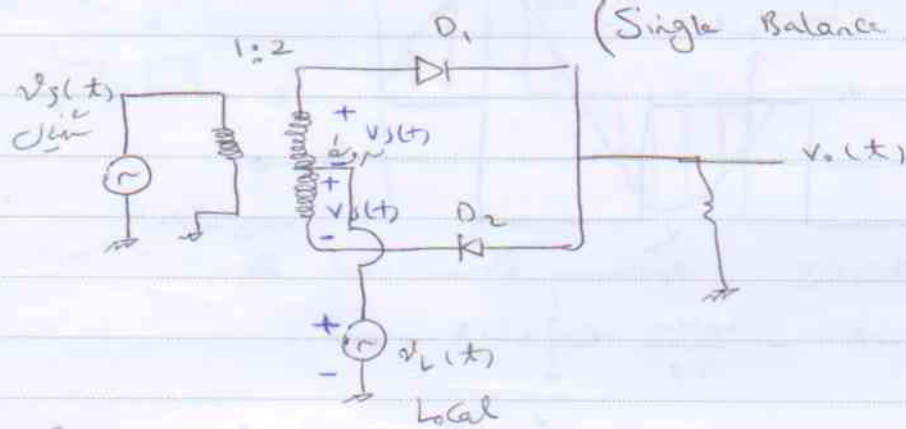 (Single Balance
D₁
1:2
vs(t)
سیگنال
+
vs(t)
-
سر وسط
+
vs(t)
-
D₂
v₀(t)
+
~
-
vL(t)
Local